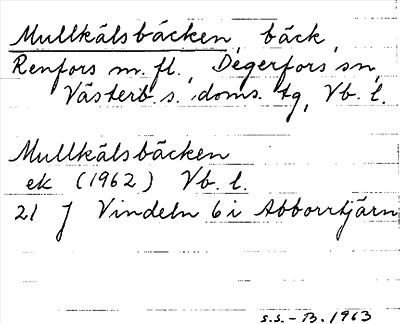 Mullkålsbäcken, bäck,
Renfors m.fl., Degerfors sn,
Västerb. s. doms. tg, Vb. l.
Mullkålsbäcken
ek (1962) Vb. l.
21 J Vindeln 6i Abborrtjärn
S.S. - B. 1963